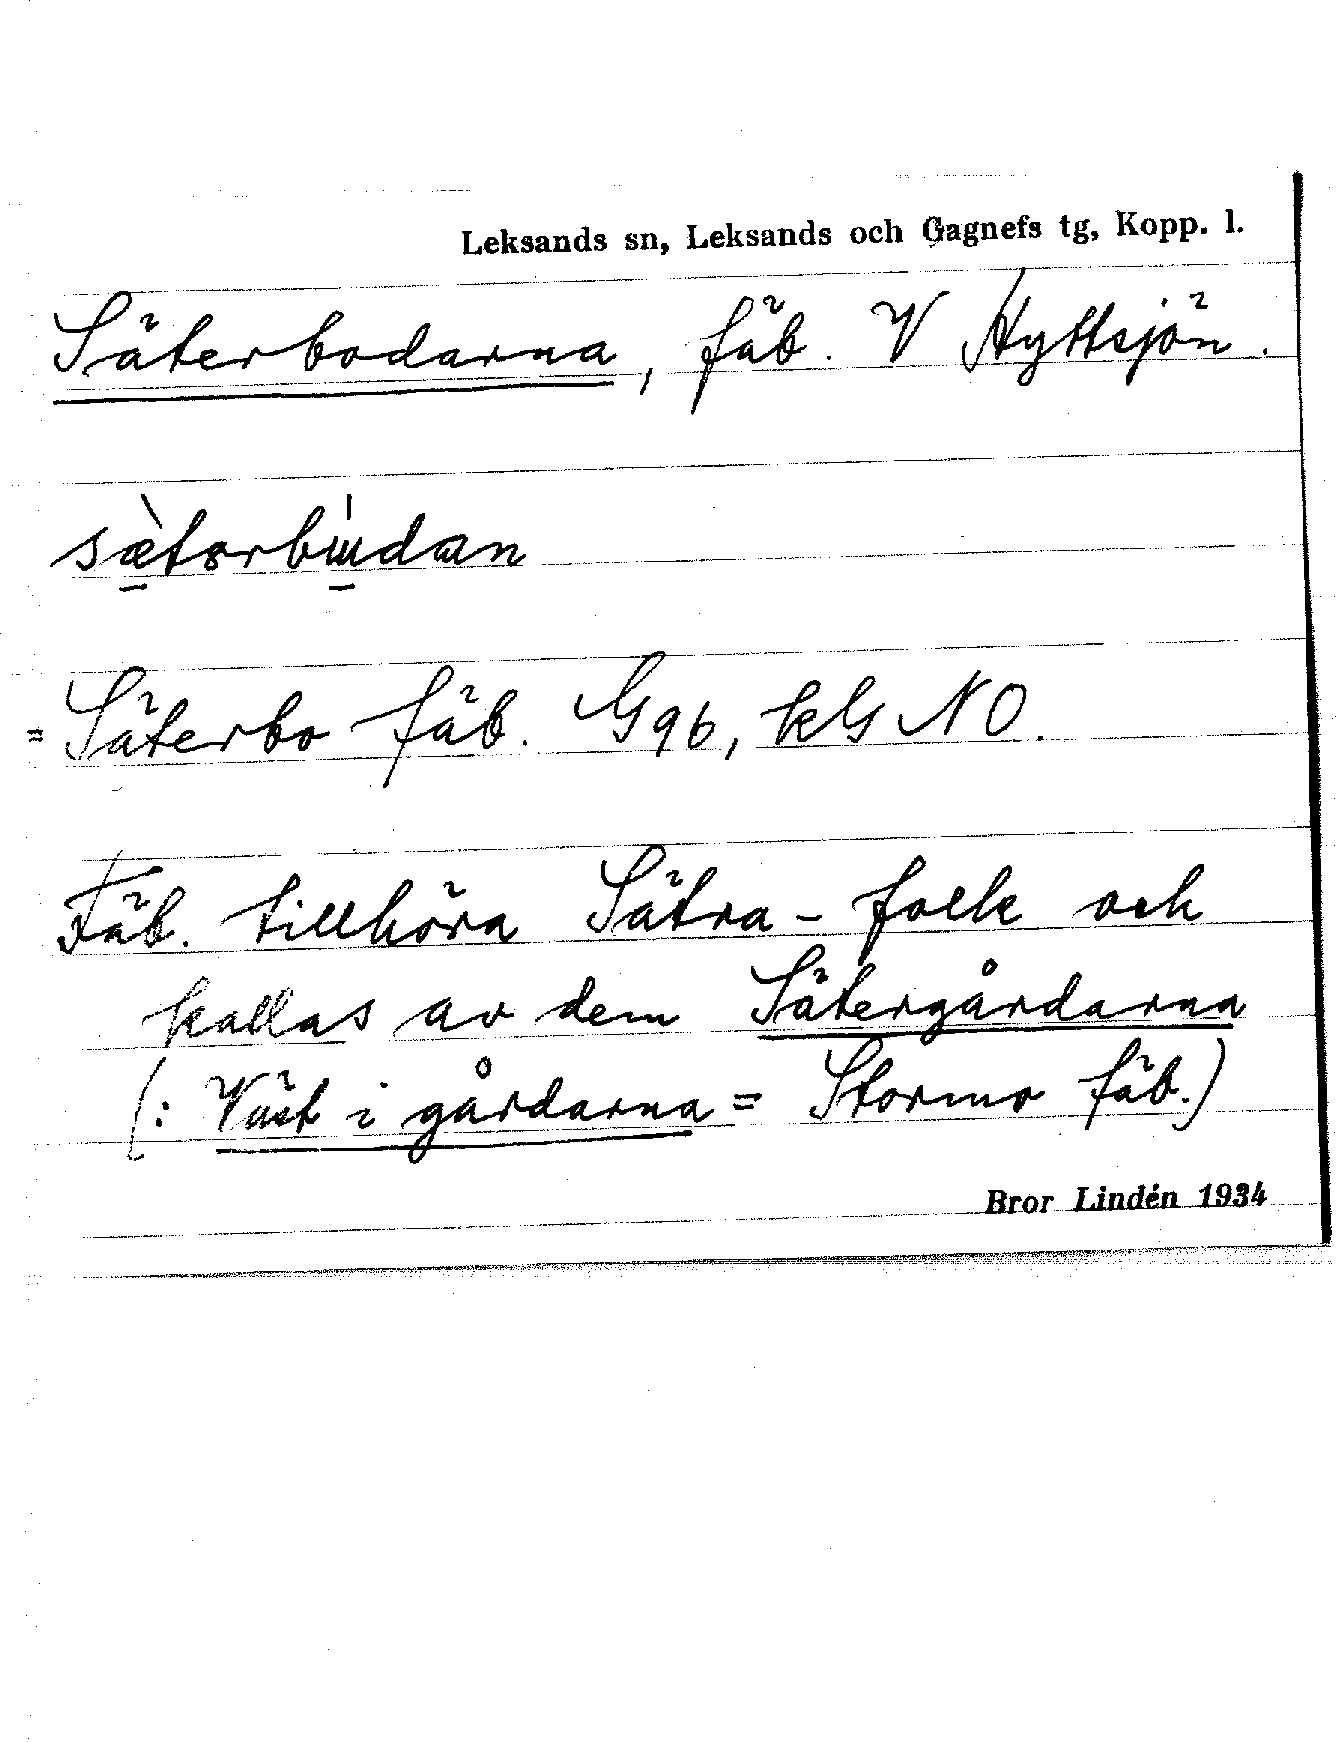 Leksands sn, Leksands och Gagnefs tg, Kopp. l.
Säterbodarna, fäb. V Hyttsjön.
sæ̀tərbɯ̀dan
= Säterbo fäb. G96, kG NO.
Fäb. tillhöra Sätra-folk och
kallas av dem Sätergårdarna
(: Väst i gårdarna = Stormo fäb.)
Bror Lindén 1934